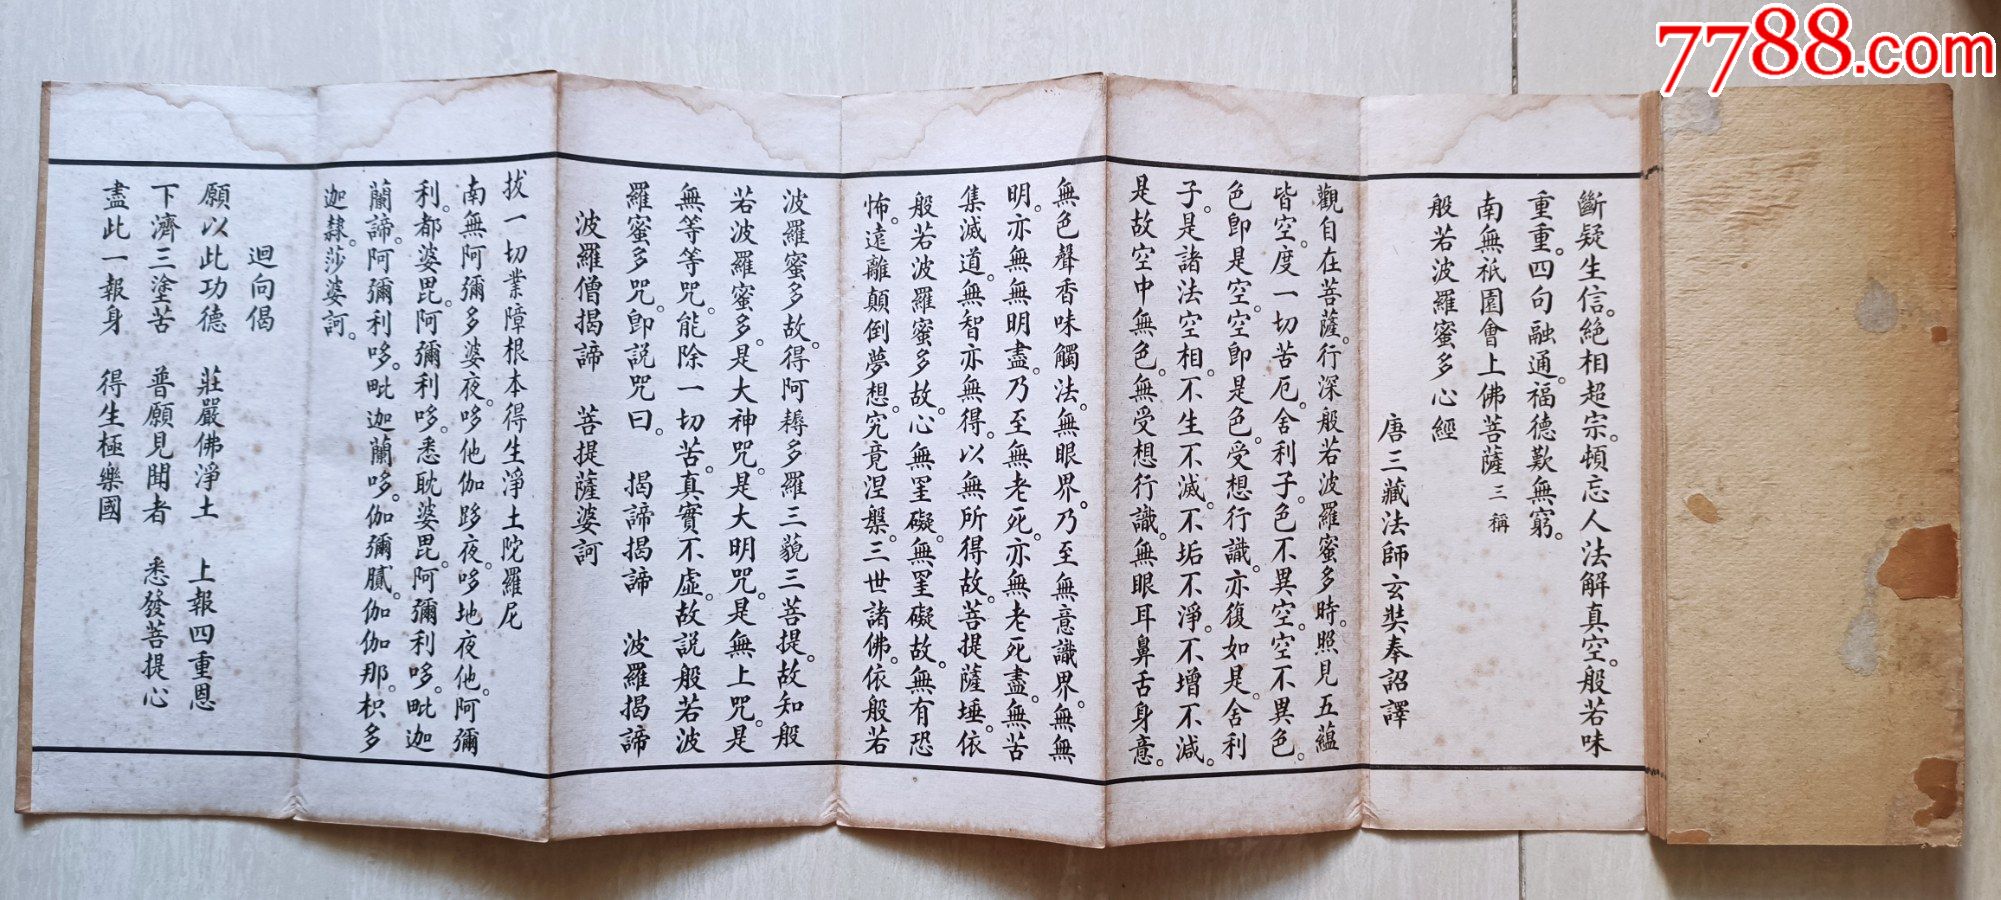 7788.com
斷疑生信。絶相超宗。頓忘人法解真空。般若味
重重。四句融通。福德歎無窮。
南無祇園會上佛菩薩 三稱
般若波羅蜜多心經
唐三藏法師玄奘奉詔譯
觀自在菩薩。行深般若波羅蜜多時。照見五蘊
皆空。度一切苦厄。舍利子。色不異空。空不異色。
色卽是空。空卽是色。受想行識。亦復如是。舍利
子。是諸法空相。不生不滅。不垢不淨。不增不減。
是故空中無色。無受想行識。無眼耳鼻舌身意。
無色聲香味觸法。無眼界。乃至無意識界。無無
明。亦無無明盡。乃至無老死。亦無老死盡。無苦
集滅道。無智亦無得。以無所得故。菩提薩埵。依
般若波羅蜜多故。心無罣礙。無罣礙故。無有恐
怖。遠離顛倒夢想。究竟涅槃。三世諸佛。依般若
波羅蜜多故。得阿耨多羅三藐三菩提。故知般
若波羅蜜多。是大神咒。是大明咒。是無上咒。是
無等等咒。能除一切苦。真實不虛。故説般若波
羅蜜多咒。卽説咒曰。 揭諦揭諦 波羅揭諦
波羅僧揭諦 菩提薩婆訶
拔一切業障根本得生淨土陀羅尼
南無阿彌多婆夜。哆他伽跢夜。哆地夜他。阿彌
利。都婆毘。阿彌利哆。悉耽婆毘。阿彌利哆。毗迦
蘭諦。阿彌利哆。毗迦蘭哆。伽彌膩。伽伽那。枳多
迦隸。莎婆訶。
迴向偈
願以此功德 莊嚴佛淨土 上報四重恩
下濟三塗苦 普願見聞者 悉發菩提心
盡此一報身 得生極樂國